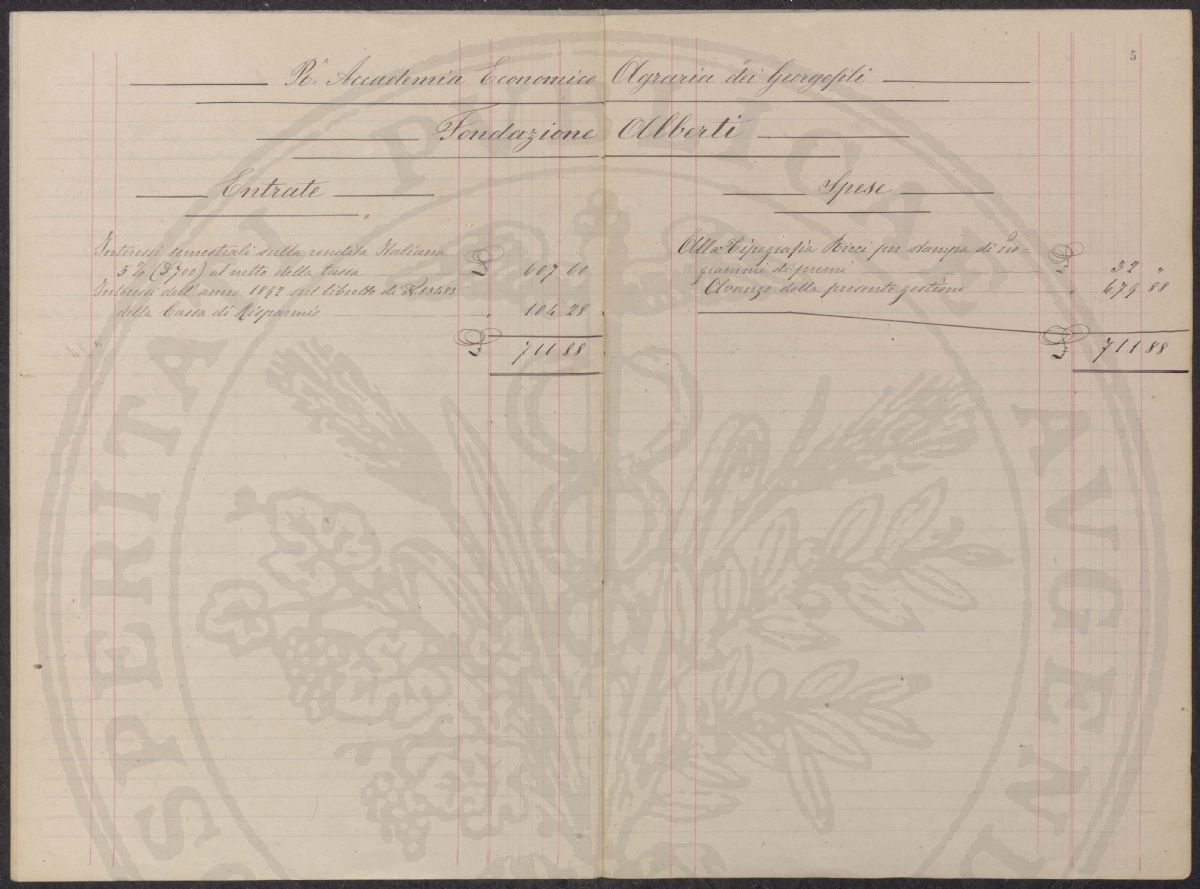 5
R. Accademia Economico Agraria dei Georgofili
Fondazione Alberti
Entrate
Interessi semestrali sulla rendita Italiana
5% (£700) al netto della tassa £ 607 60
Interessi dell'anno 1892 sul libretto di
della Cassa di Risparmio " 104 28
£ 711 88
Spese
Alla Tipografia Ricci per stampa di pro-
grammi di premi £ 32 "
Avanzo della presente gestione " 679 88
£ 711 88
SPERITATI PUBLICAE AVGEND